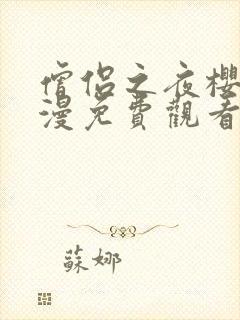 僧侶之夜櫻
漫免費觀看
蘇娜